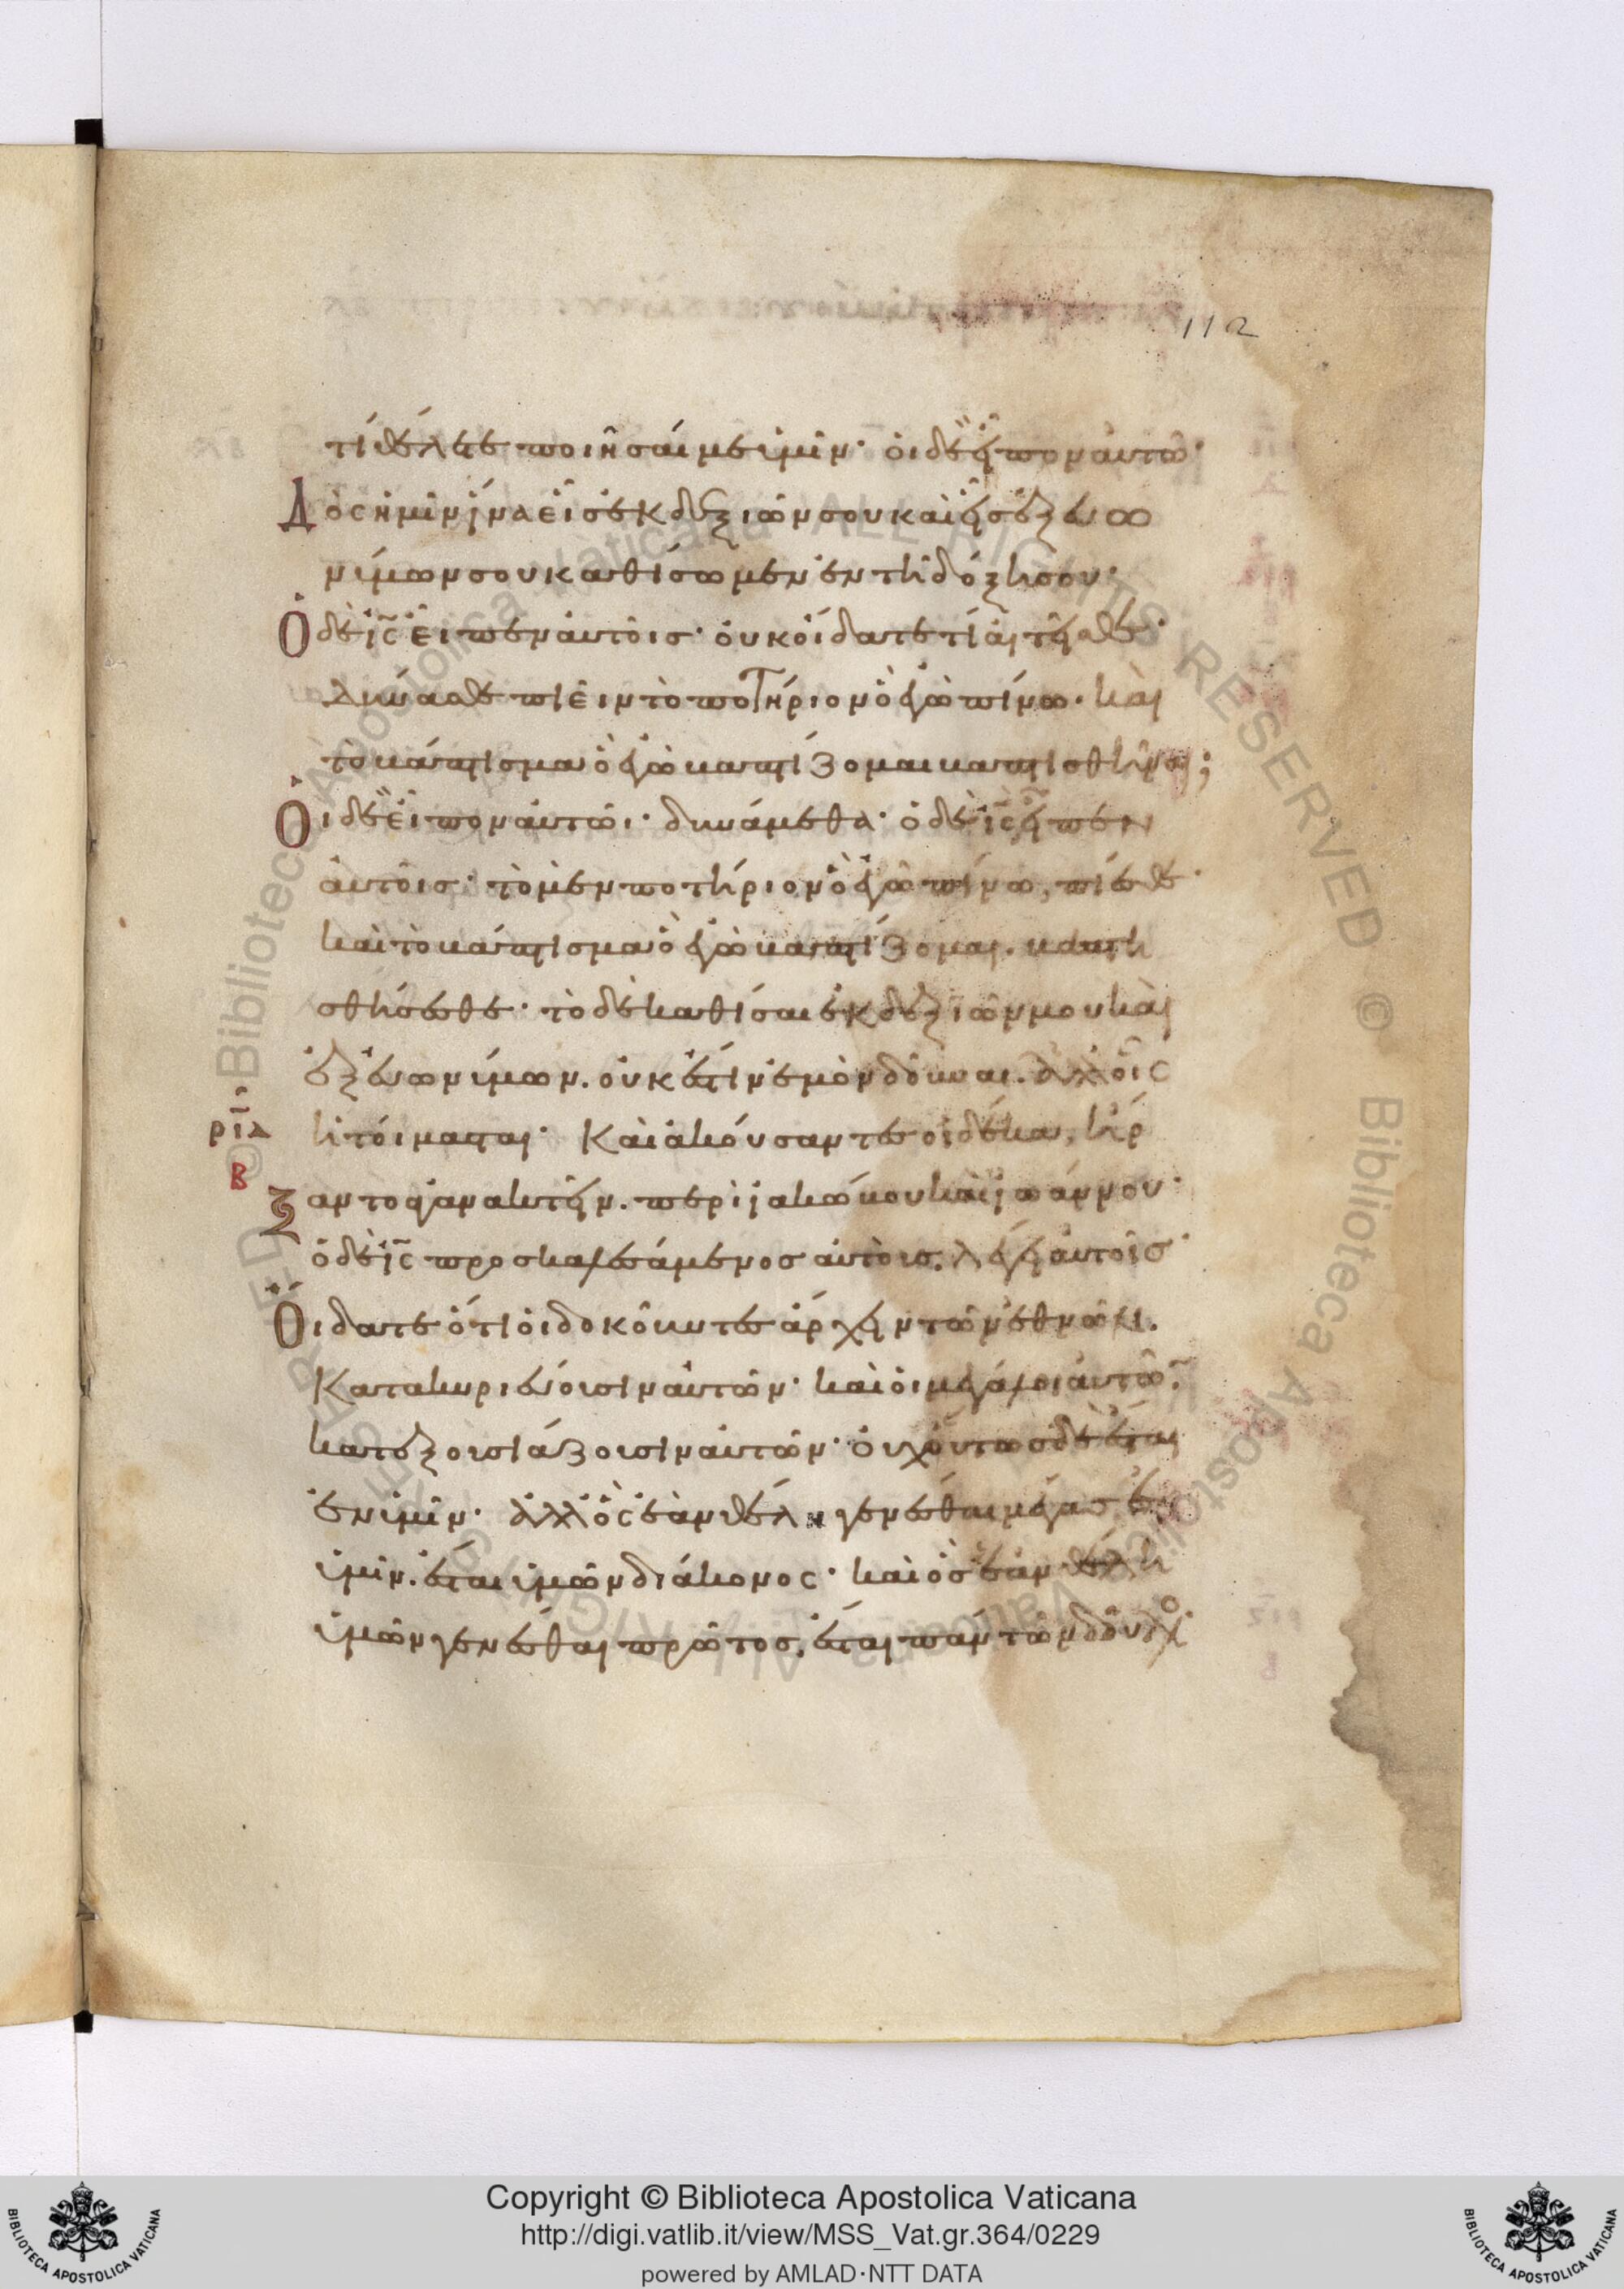 112
τί θέλετε ποιῆσαί με ὑμῖν· οἱ δὲ εἶπον αὐτῶ·
Δὸς ἡμῖν ἵνα εἷς ἐκ δεξιῶν σου καὶ εἷς ἐξ εὐω
νύμων σου καθίσωμεν ἐν τῆ δόξη σου·
Ὁ δὲ ις εἶπεν αὐτοῖς· οὐκ οἴδατε τί αἰτεῖσθε·
δύνασθε πιεῖν τὸ ποτήριον ὃ ἐγὼ πίνω· καὶ
τὸ βάπτισμα ὃ ἐγὼ βαπτίζομαι βαπτισθῆναι;
Οἱ δὲ εἶπον αὐτῶι· δυνάμεθα· ὁ δὲ ις εἶπεν
αὐτοῖς· τὸ μὲν ποτήριον ὃ ἐγὼ πίνω, πίεσθε·
καὶ τὸ βάπτισμα ὃ ἐγὼ βαπτίζομαι. βαπτι
σθήσεσθε· τὸ δὲ καθίσαι ἐκ δεξιῶν μου καὶ
ἐξ εὐωνύμων. οὐκ ἔστιν ἐμὸν δοῦναι. ἀλλ' οἷς
ἡτοίμασται· Καὶ ἀκούσαντες οἱ δέκα, ἤρ
ρια
β
ξαντο ἀγανακτεῖν. περὶ ἰακώβου καὶ ἰωάννου·
ὁ δὲ ις προσκαλεσάμενος αὐτοὺς. λέγει αὐτοῖς·
Οἴδατε ὅτι οἱ δοκοῦντες ἄρχειν τῶν ἐθνῶν.
Κατακυριεύουσιν αὐτῶν· καὶ οἱ μεγάλοι αὐτῶν·
κατεξουσιάζουσιν αὐτῶν· οὐχ οὕτως δὲ ἔσται
ἐν ὑμῖν· ἀλλ' ὃς ἐὰν θέλη γενέσθαι μέγας ἐν
ὑμῖν. ἔσται ὑμῶν διάκονος· καὶ ὃς ἐὰν θέλη
ὑμῶν γενέσθαι πρῶτος. ἔσται πάντων δοῦλο
Copyright © Biblioteca Apostolica Vaticana
http://digi.vatlib.it/view/MSS_Vat.gr.364/0229
powered by AMLAD·NTT DATA
BIBLIOTECA APOSTOLICA VATICANA
BIBLIOTECA APOSTOLICA VATICANA